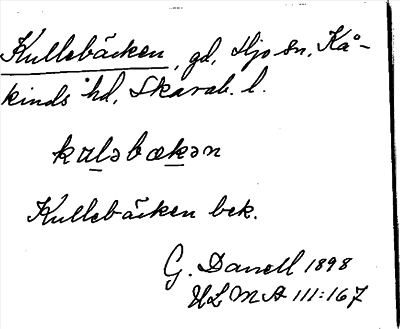 Kullebäcken, gd, Hjo sn, Kå-
kinds hd, Skarab. l.
kuləbækən
Kullebäcken bek.
G. Danell 1898
ULMA 111:167